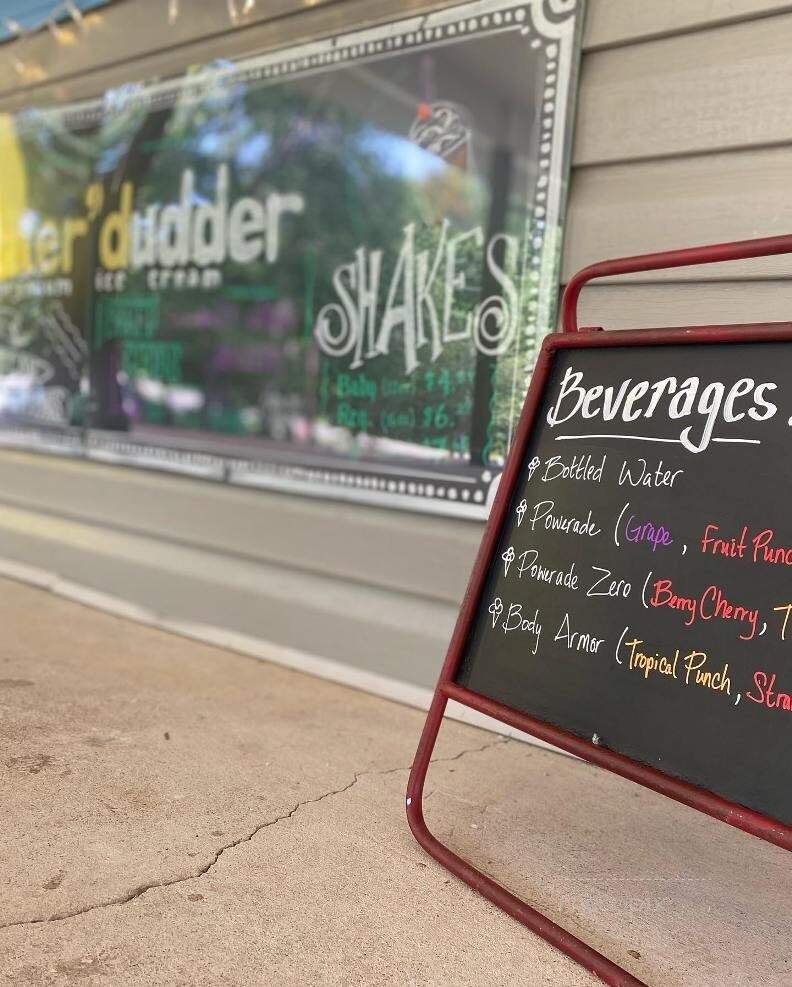 ker'dudder
ice cream
SHAKES
Baby $4.
Reg. $6.
Beverages
Bottled Water
Powerade (Grape, Fruit Punc
Powerade Zero (Berry Cherry, T
Body Armor (Tropical Punch, Stra